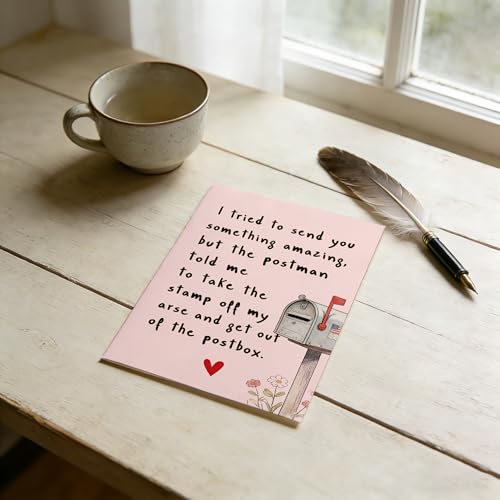 I tried to send you
something amazing,
but the postman
told me
to take the
stamp off my
arse and get out
of the postbox.